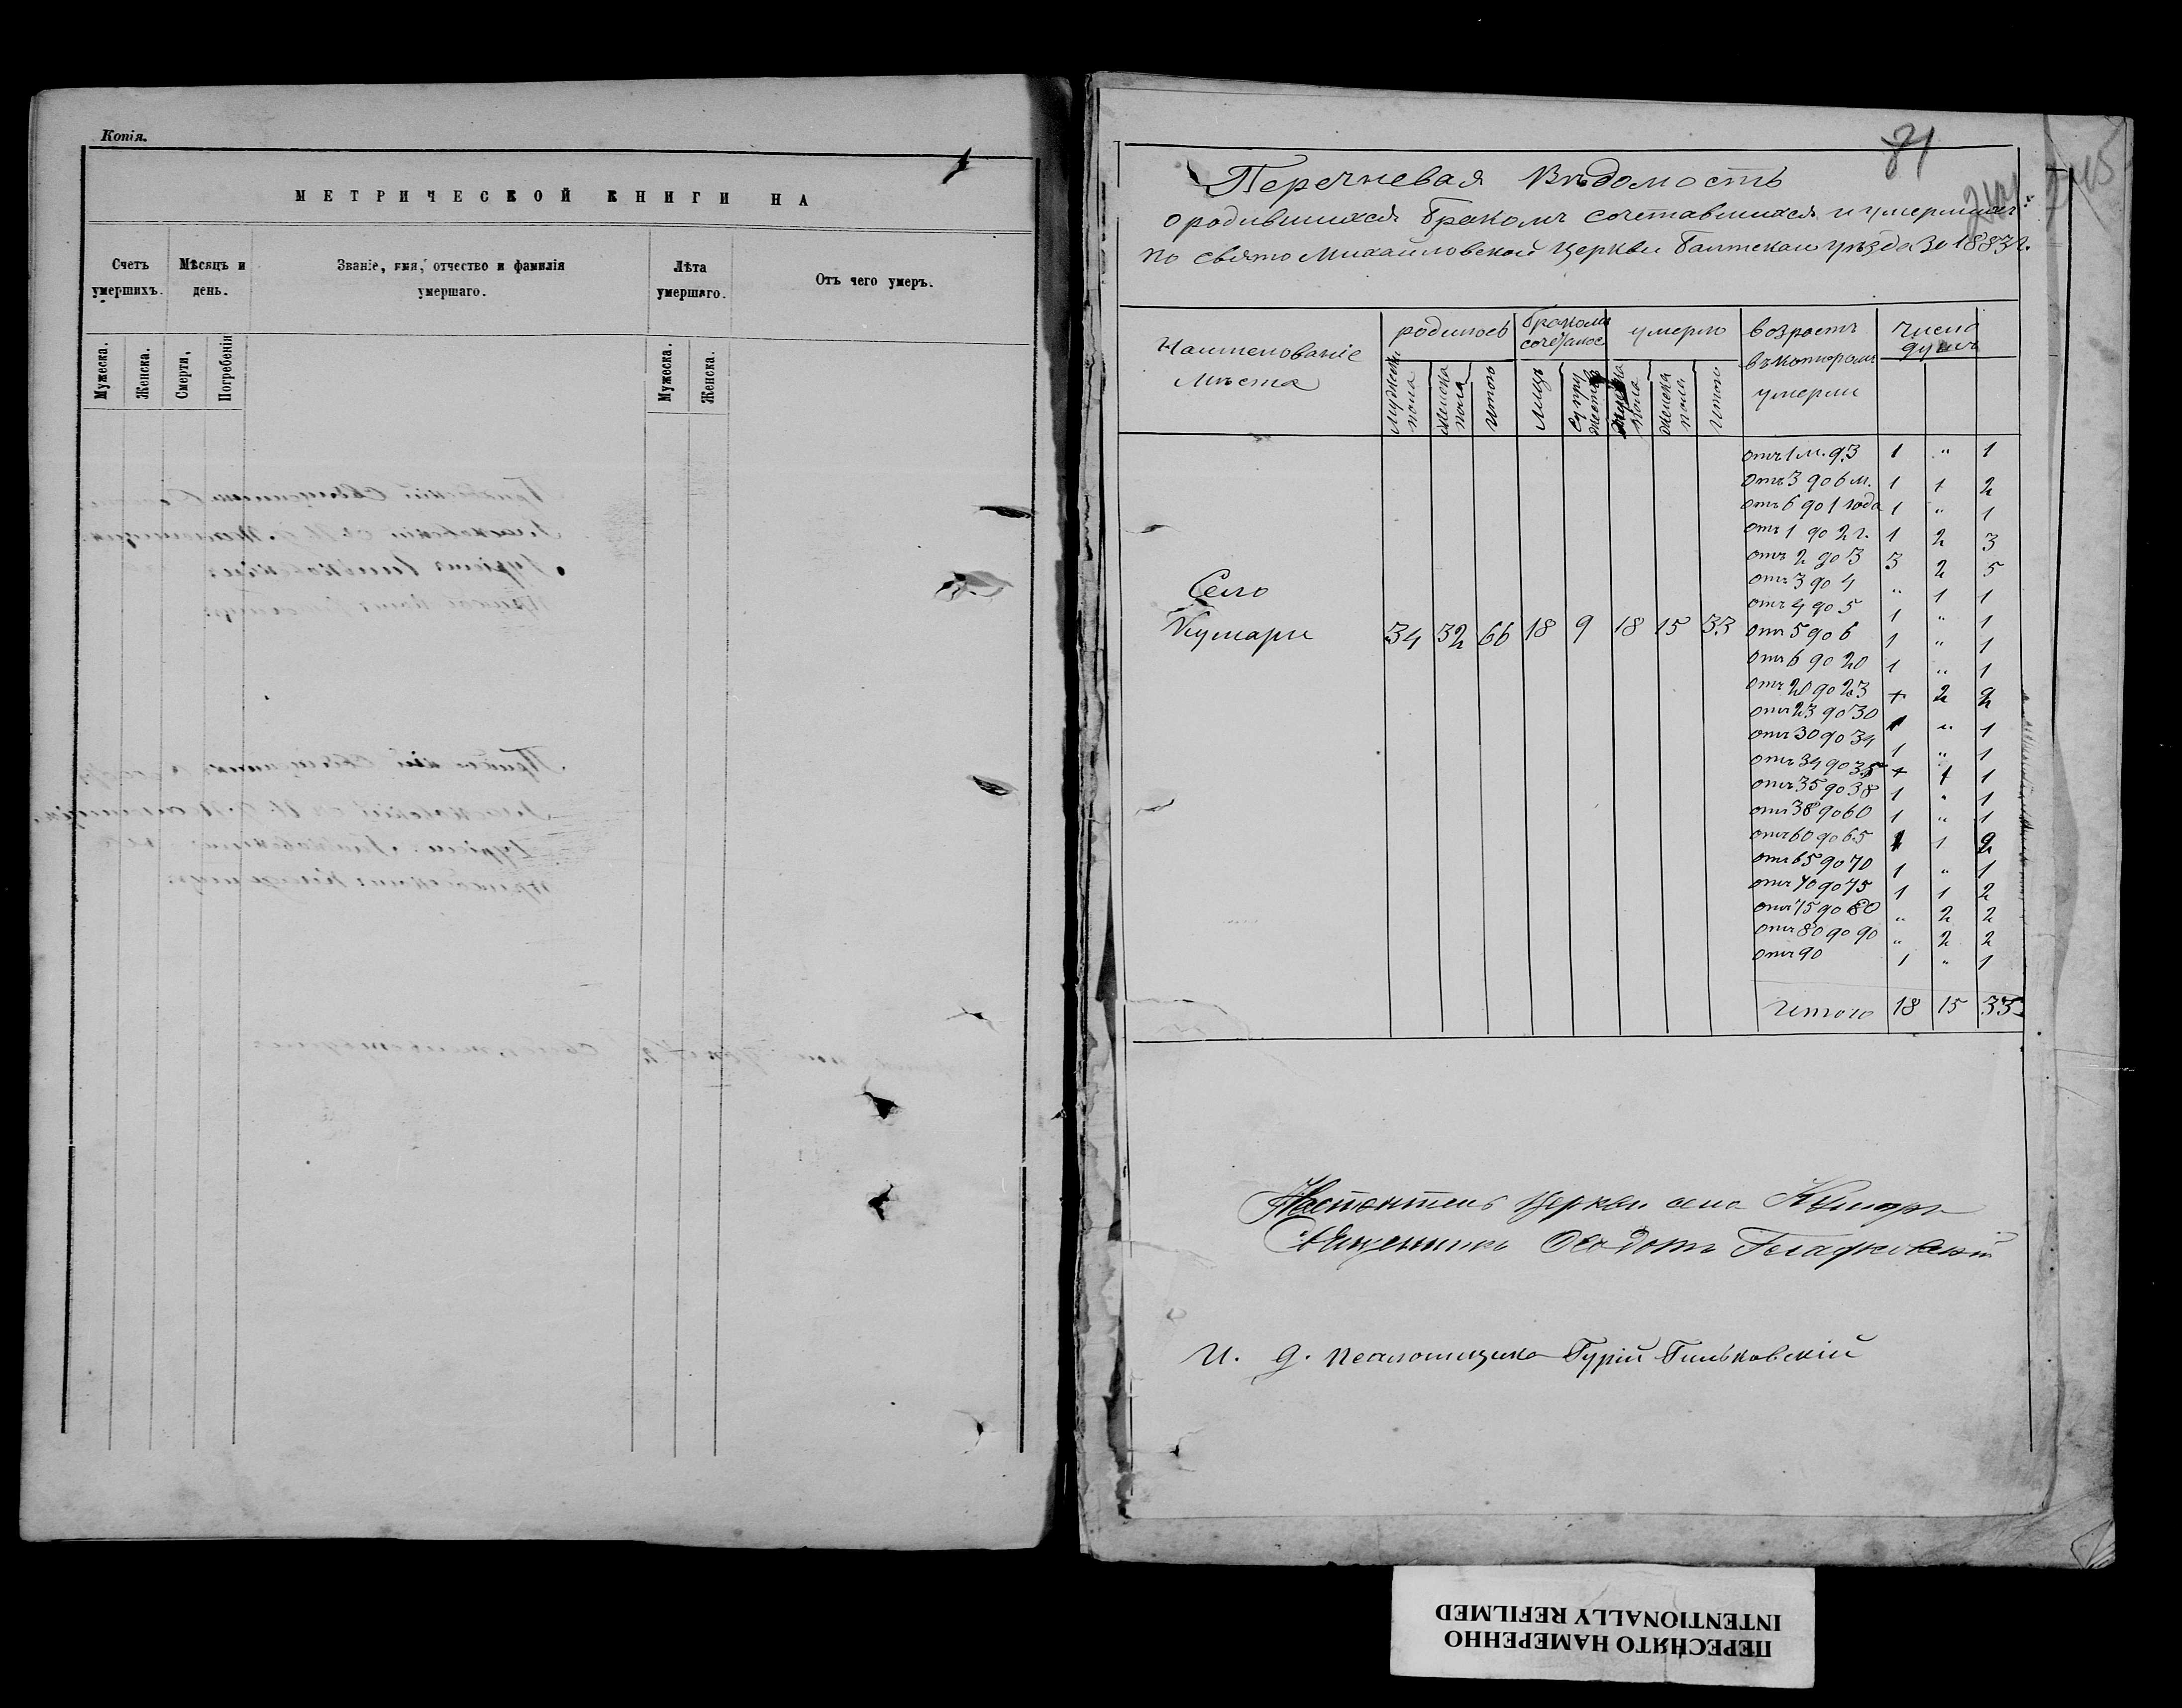 Копія.
МЕТРИЧЕСКОЙ КНИГИ НА
Счетъ умершихъ.
Мѣсяцъ и день.
Званіе, имя, отчество и фамилія умершаго.
Лѣта умершаго.
Отъ чего умеръ.
Мужеска.
Женска.
Смерти,
Погребенія
Мужеска.
Женска.
81
Перечневая Вѣдомость
о родившихся бракомъ сочетавшихся и умершихъ
по свято Михайловской Церкви Балтскаго уѣзда за 1883 г.
Наименованіе мѣста
родилось
бракомъ
умерло
возрастъ въ которомъ умерли
число душъ
Мужеска пола
Женска пола
Итого
Лицъ
Супружествъ
пола
Женска пола
Итого
Село
34 32 66 18 9 18 15 33
отъ 1 м. д. 3 1 " 1
отъ 3 до 6 м. 1 1 2
отъ 6 до 1 года 1 " 1
отъ 1 до 2 г. 1 2 3
отъ 2 до 3 3 2 5
отъ 3 до 4 " 1 1
отъ 4 до 5 1 " 1
отъ 5 до 6 1 " 1
отъ 6 до 20 1 " 1
отъ 20 до 23 + 2 2
отъ 23 до 30 1 " 1
отъ 30 до 34 1 " 1
отъ 34 до 35 + 1 1
отъ 35 до 38 1 " 1
отъ 38 до 60 1 " 1
отъ 60 до 65 1 1 2
отъ 65 до 70 1 " 1
отъ 70 до 75 1 1 2
отъ 75 до 80 " 2 2
отъ 80 до 90 " 2 2
отъ 90 1 " 1
Итого 18 15 33
Настоятель Церкви села
Священникъ Ѳеодотъ
И. д. псаломщика Гурій Гиньковскій
ПЕРЕСНЯТО НАМЕРЕННО
INTENTIONALLY REFILMED